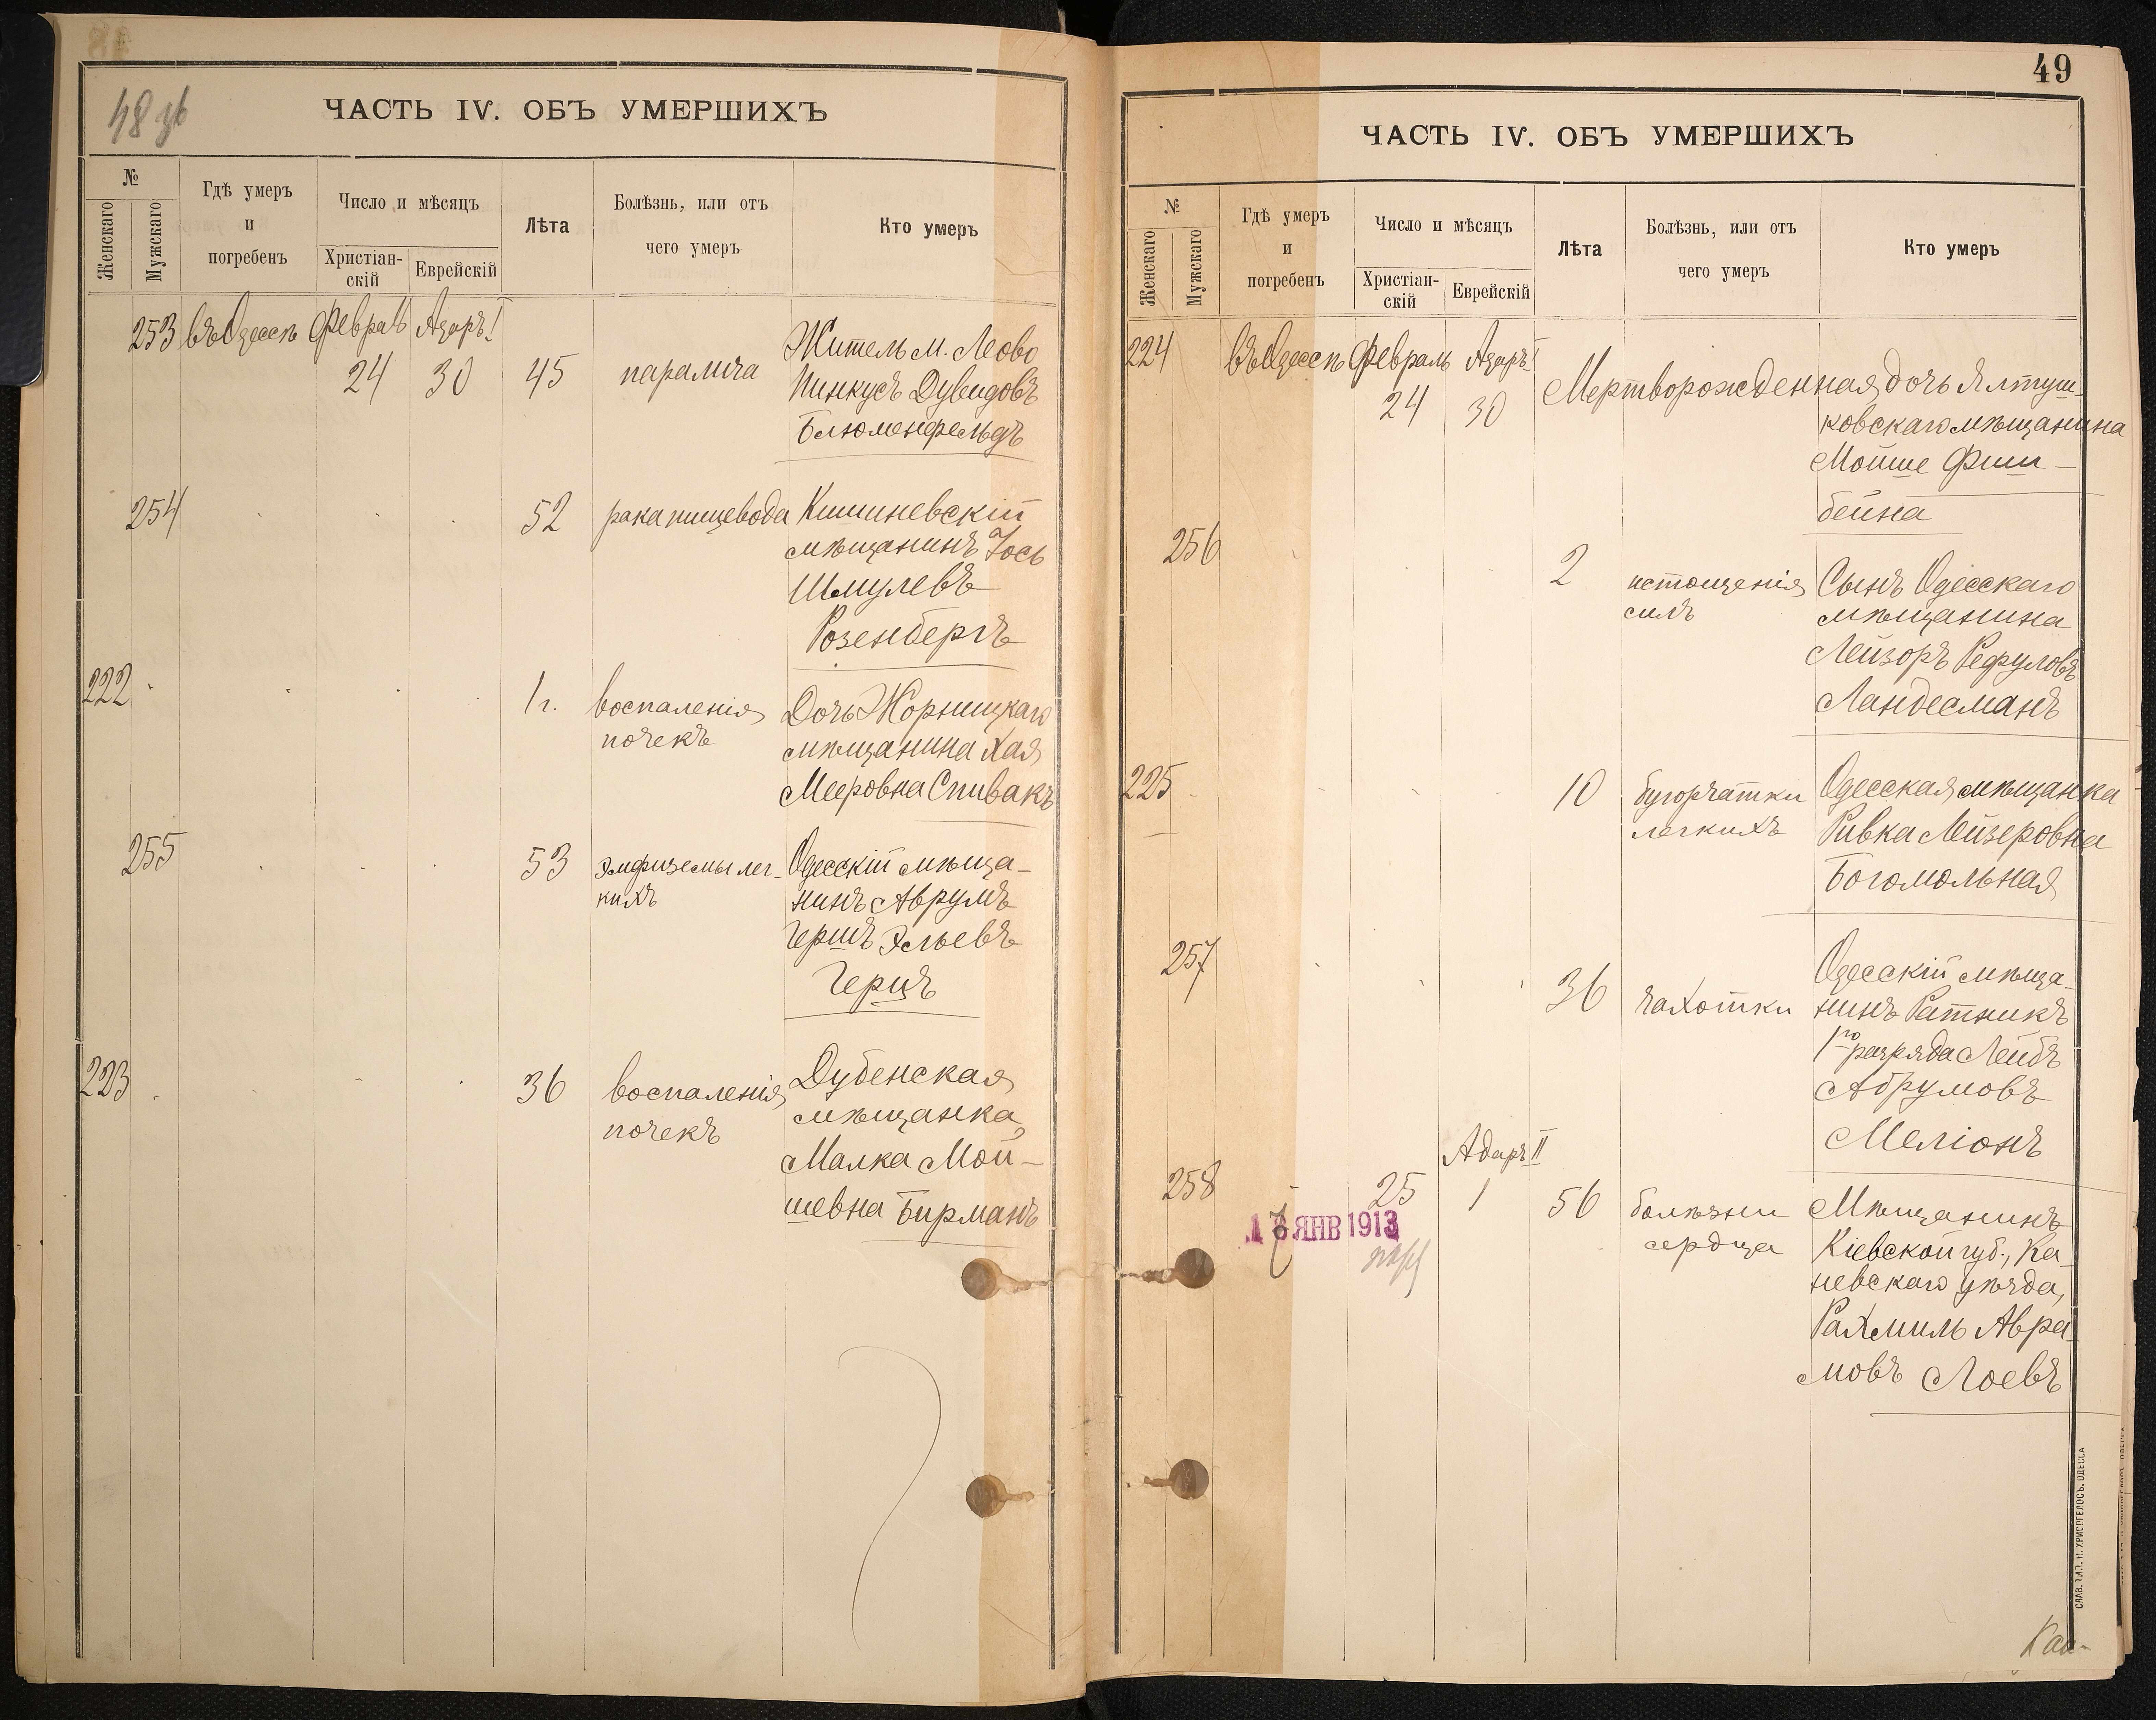 48 зв
ЧАСТЬ IV. ОБЪ УМЕРШИХЪ
№
Женскаго
Мужскаго
Гдѣ умеръ
и
погребенъ
Число и мѣсяцъ
Христіан-
скій
Еврейскій
Лѣта
Болѣзнь, или отъ
чего умеръ
Кто умеръ
253 въ Одессѣ Февраль Адаръ I
24 30 45 паралича
Житель м. Леово
Пинкусъ Дувидовъ
Блюменфельдъ
254 52 рака пищевода Кишиневскій
мѣщанинъ Іось
Шмулевъ
Розенбергъ
222 1 г. воспаленія Дочь Жорнищкаго
почекъ мѣщанина Хая
Мееровна Спивакъ
255 53 эмфиземы лег- Одесскій мѣща-
кихъ нинъ Аврумъ
Гершъ Эльевъ
Герцъ
223 36 воспаленія Дубенская
почекъ мѣщанка,
Малка Мой-
шевна Бирманъ
49
ЧАСТЬ IV. ОБЪ УМЕРШИХЪ
№
Женскаго
Мужскаго
Гдѣ умеръ
и
погребенъ
Число и мѣсяцъ
Христіан-
скій
Еврейскій
Лѣта
Болѣзнь, или отъ
чего умеръ
Кто умеръ
224 въ Одессѣ Февраль Адаръ I
24 30 Мертворожденная дочь Ялтуш-
ковскаго мѣщанина
Мойше Фиш-
бейна
256 2 истощенія Сынъ Одесскаго
силъ мѣщанина
Лейзоръ Рефуловъ
Ландесманъ
225 10 бугорчатки Одесская мѣщанка
легкихъ Ривка Лейзеровна
Богомольная
257 36 чахотки Одесскій мѣща-
нинъ Ратникъ
1го разряда Лейбъ
Абрумовъ
Меліонъ
Адаръ II
258 25 1 56 болѣзни Мѣщанинъ
сердца Кіевской губ., Ка-
невскаго уѣзда,
Рахмиль Авра-
мовъ Лоевъ
ЯНВ 1913
СЛАВ. ТИП. Н. ХРИСОГЕЛОСЪ. ОДЕССА